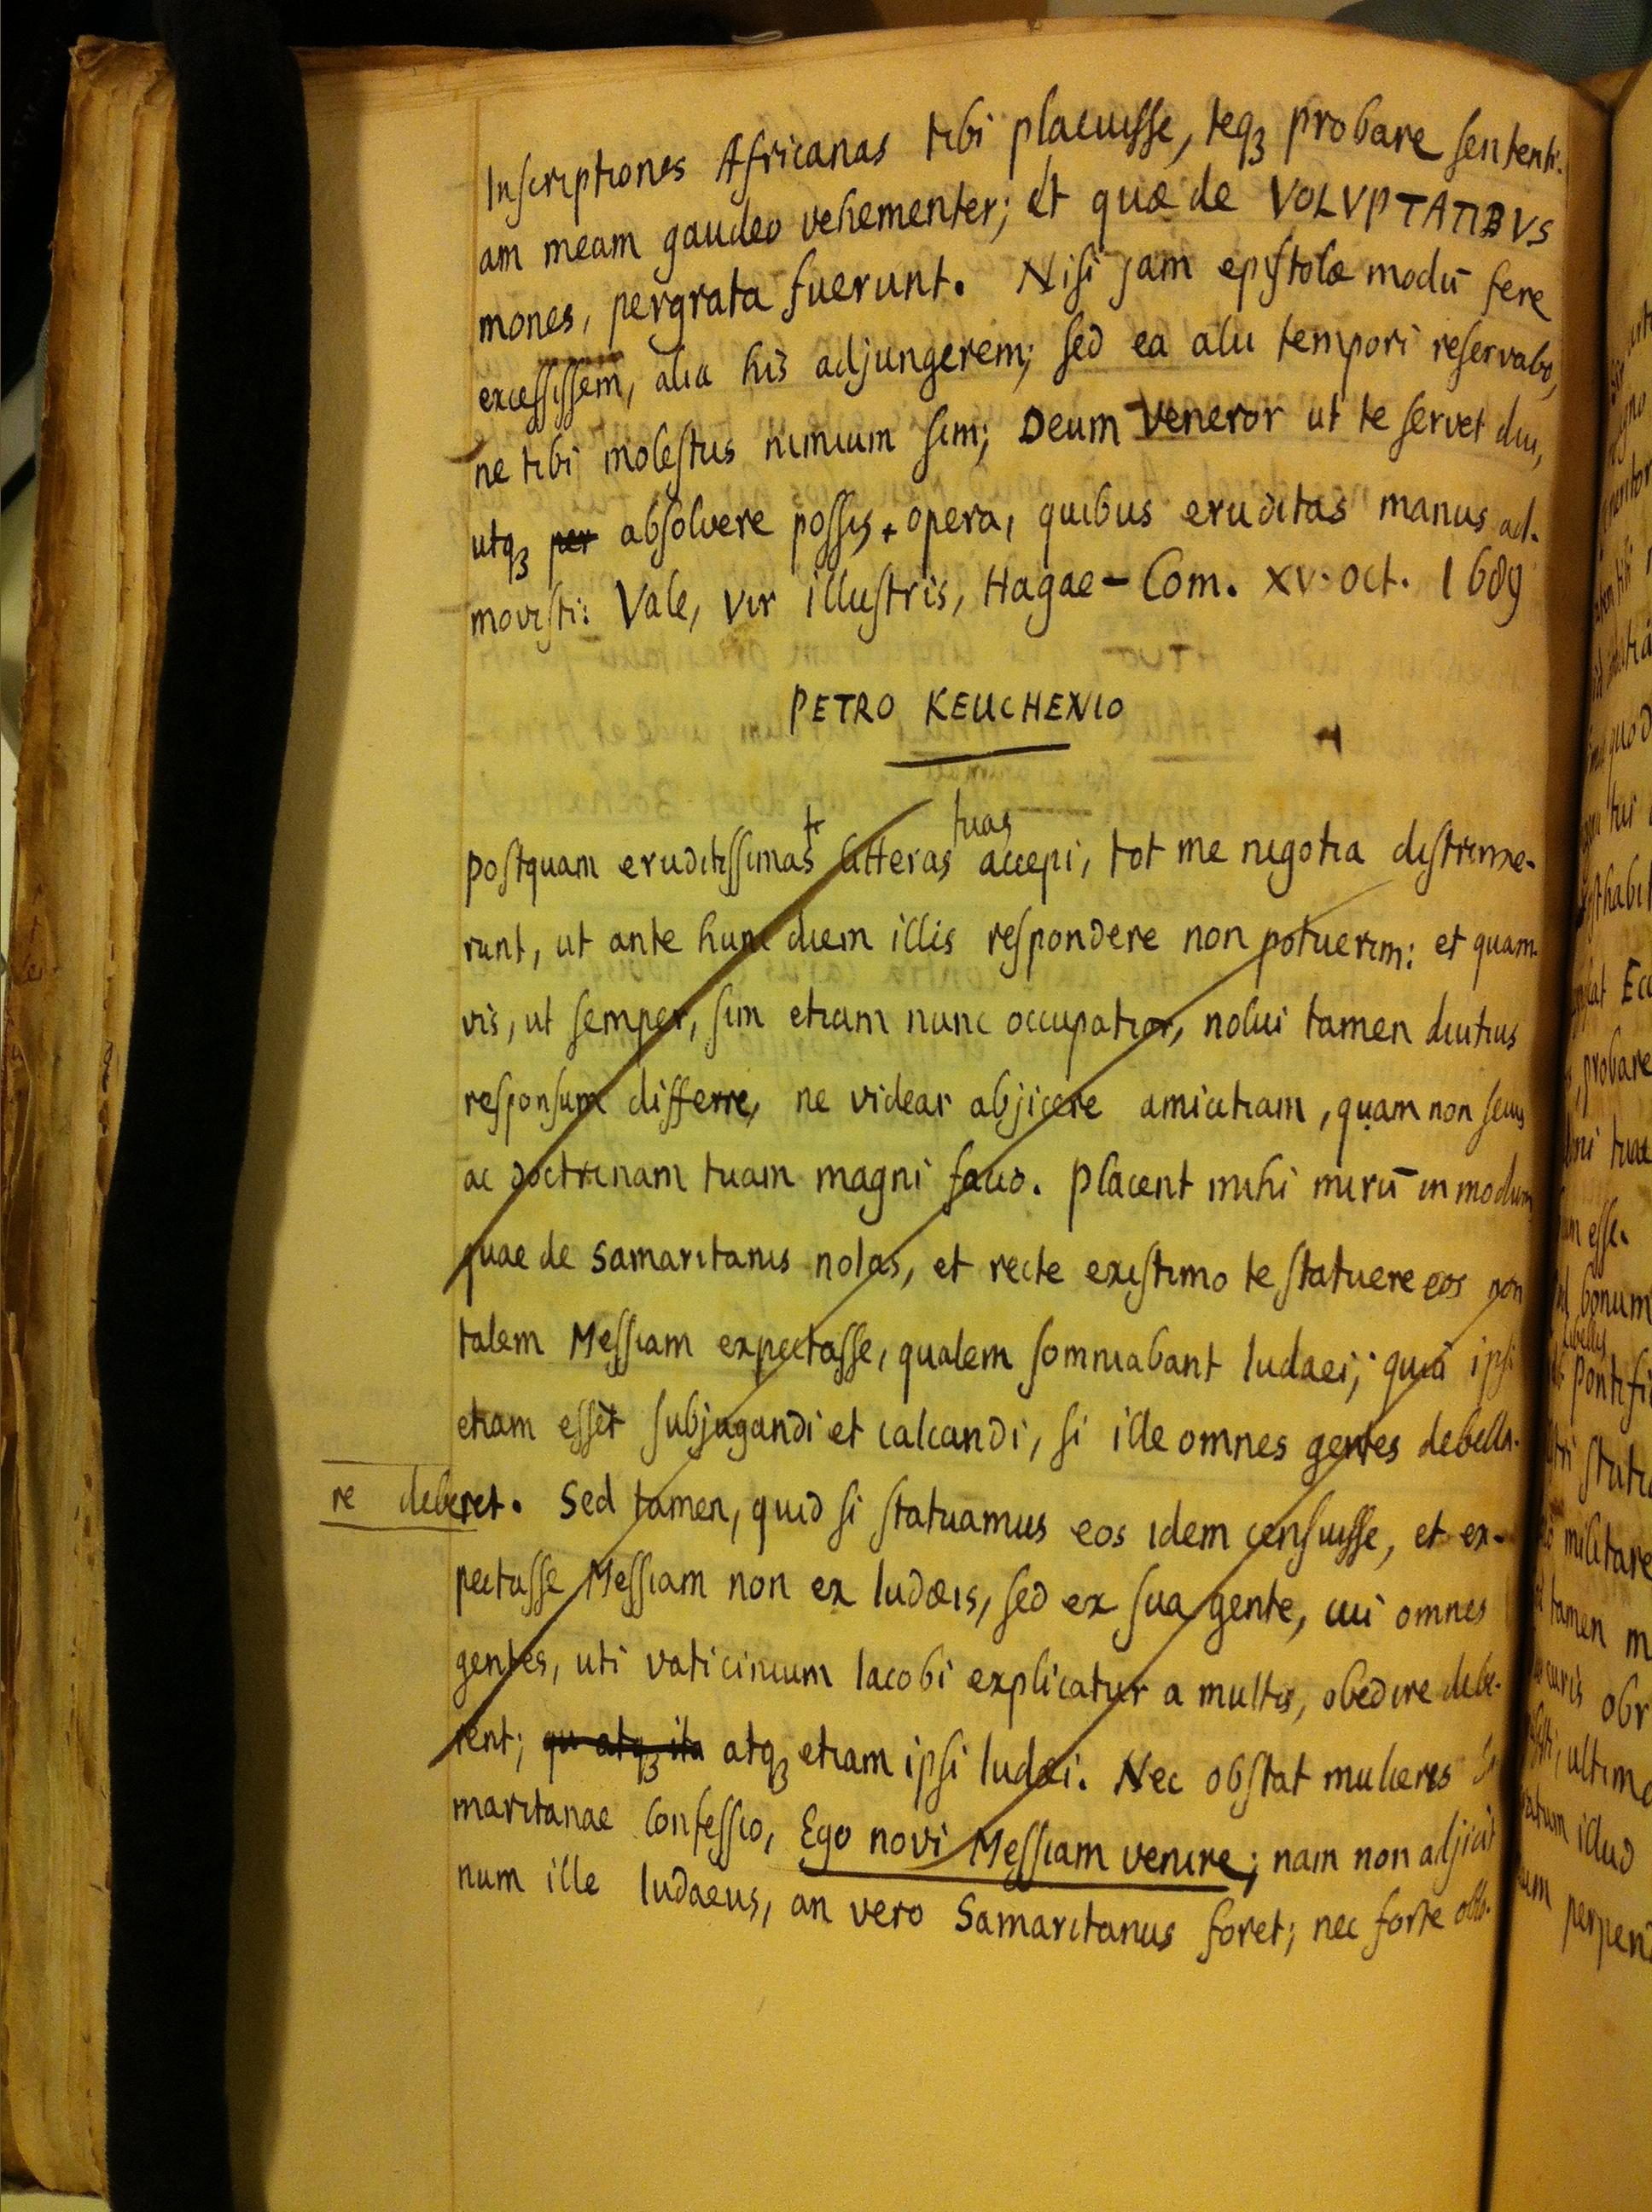 Inscriptiones Africanas tibi placuisse, teqʒ probare sententi-
am meam gaudeo vehementer; et quæ de VOLVPTATIBVS
mones, pergrata fuerunt. Nisi jam epistolæ modū fere
excessissem, alia his adjungerem; sed ea alii tempori reservabo,
ne tibi molestus nimium sim; Deum veneror ut te servet diu,
utqʒ per absolvere possis opera, quibus eruditas manus ad-
movisti: Vale, Vir illustris, Hagae-Com. XV. Oct. 1689
PETRO KEUCHENIO
Postquam eruditissimas litteras tuas accepi, tot me negotia distrinxe-
runt, ut ante hunc diem illis respondere non potuerim: et quam-
vis, ut semper, sim etiam nunc occupatior, nolui tamen diutius
responsum differre, ne videar abjicere amicitiam, quam non secus
ac doctrinam tuam magni facio. Placent mihi mirū in modum
quae de Samaritanis notas, et recte existimo te statuere eos non
talem Messiam expectasse, qualem somniabant Iudaei; quia ipsi
etiam essēt subjugandi et calcandi, si ille omnes gentes debella-
re deberet. Sed tamen, quid si statuamus eos idem censuisse, et ex-
pectasse Messiam non ex Iudæis, sed ex sua gente, cui omnes
gentes, uti vaticinium Iacobi explicatur a multis, obedire debe-
rent; qu atqʒ ita atqʒ etiam ipsi Iudæi. Nec obstat mulieris Sa-
maritanae Confessio, Ego novi Messiam venire; nam non adjicit
num ille Iudaeus, an vero Samaritanus foret; nec forte